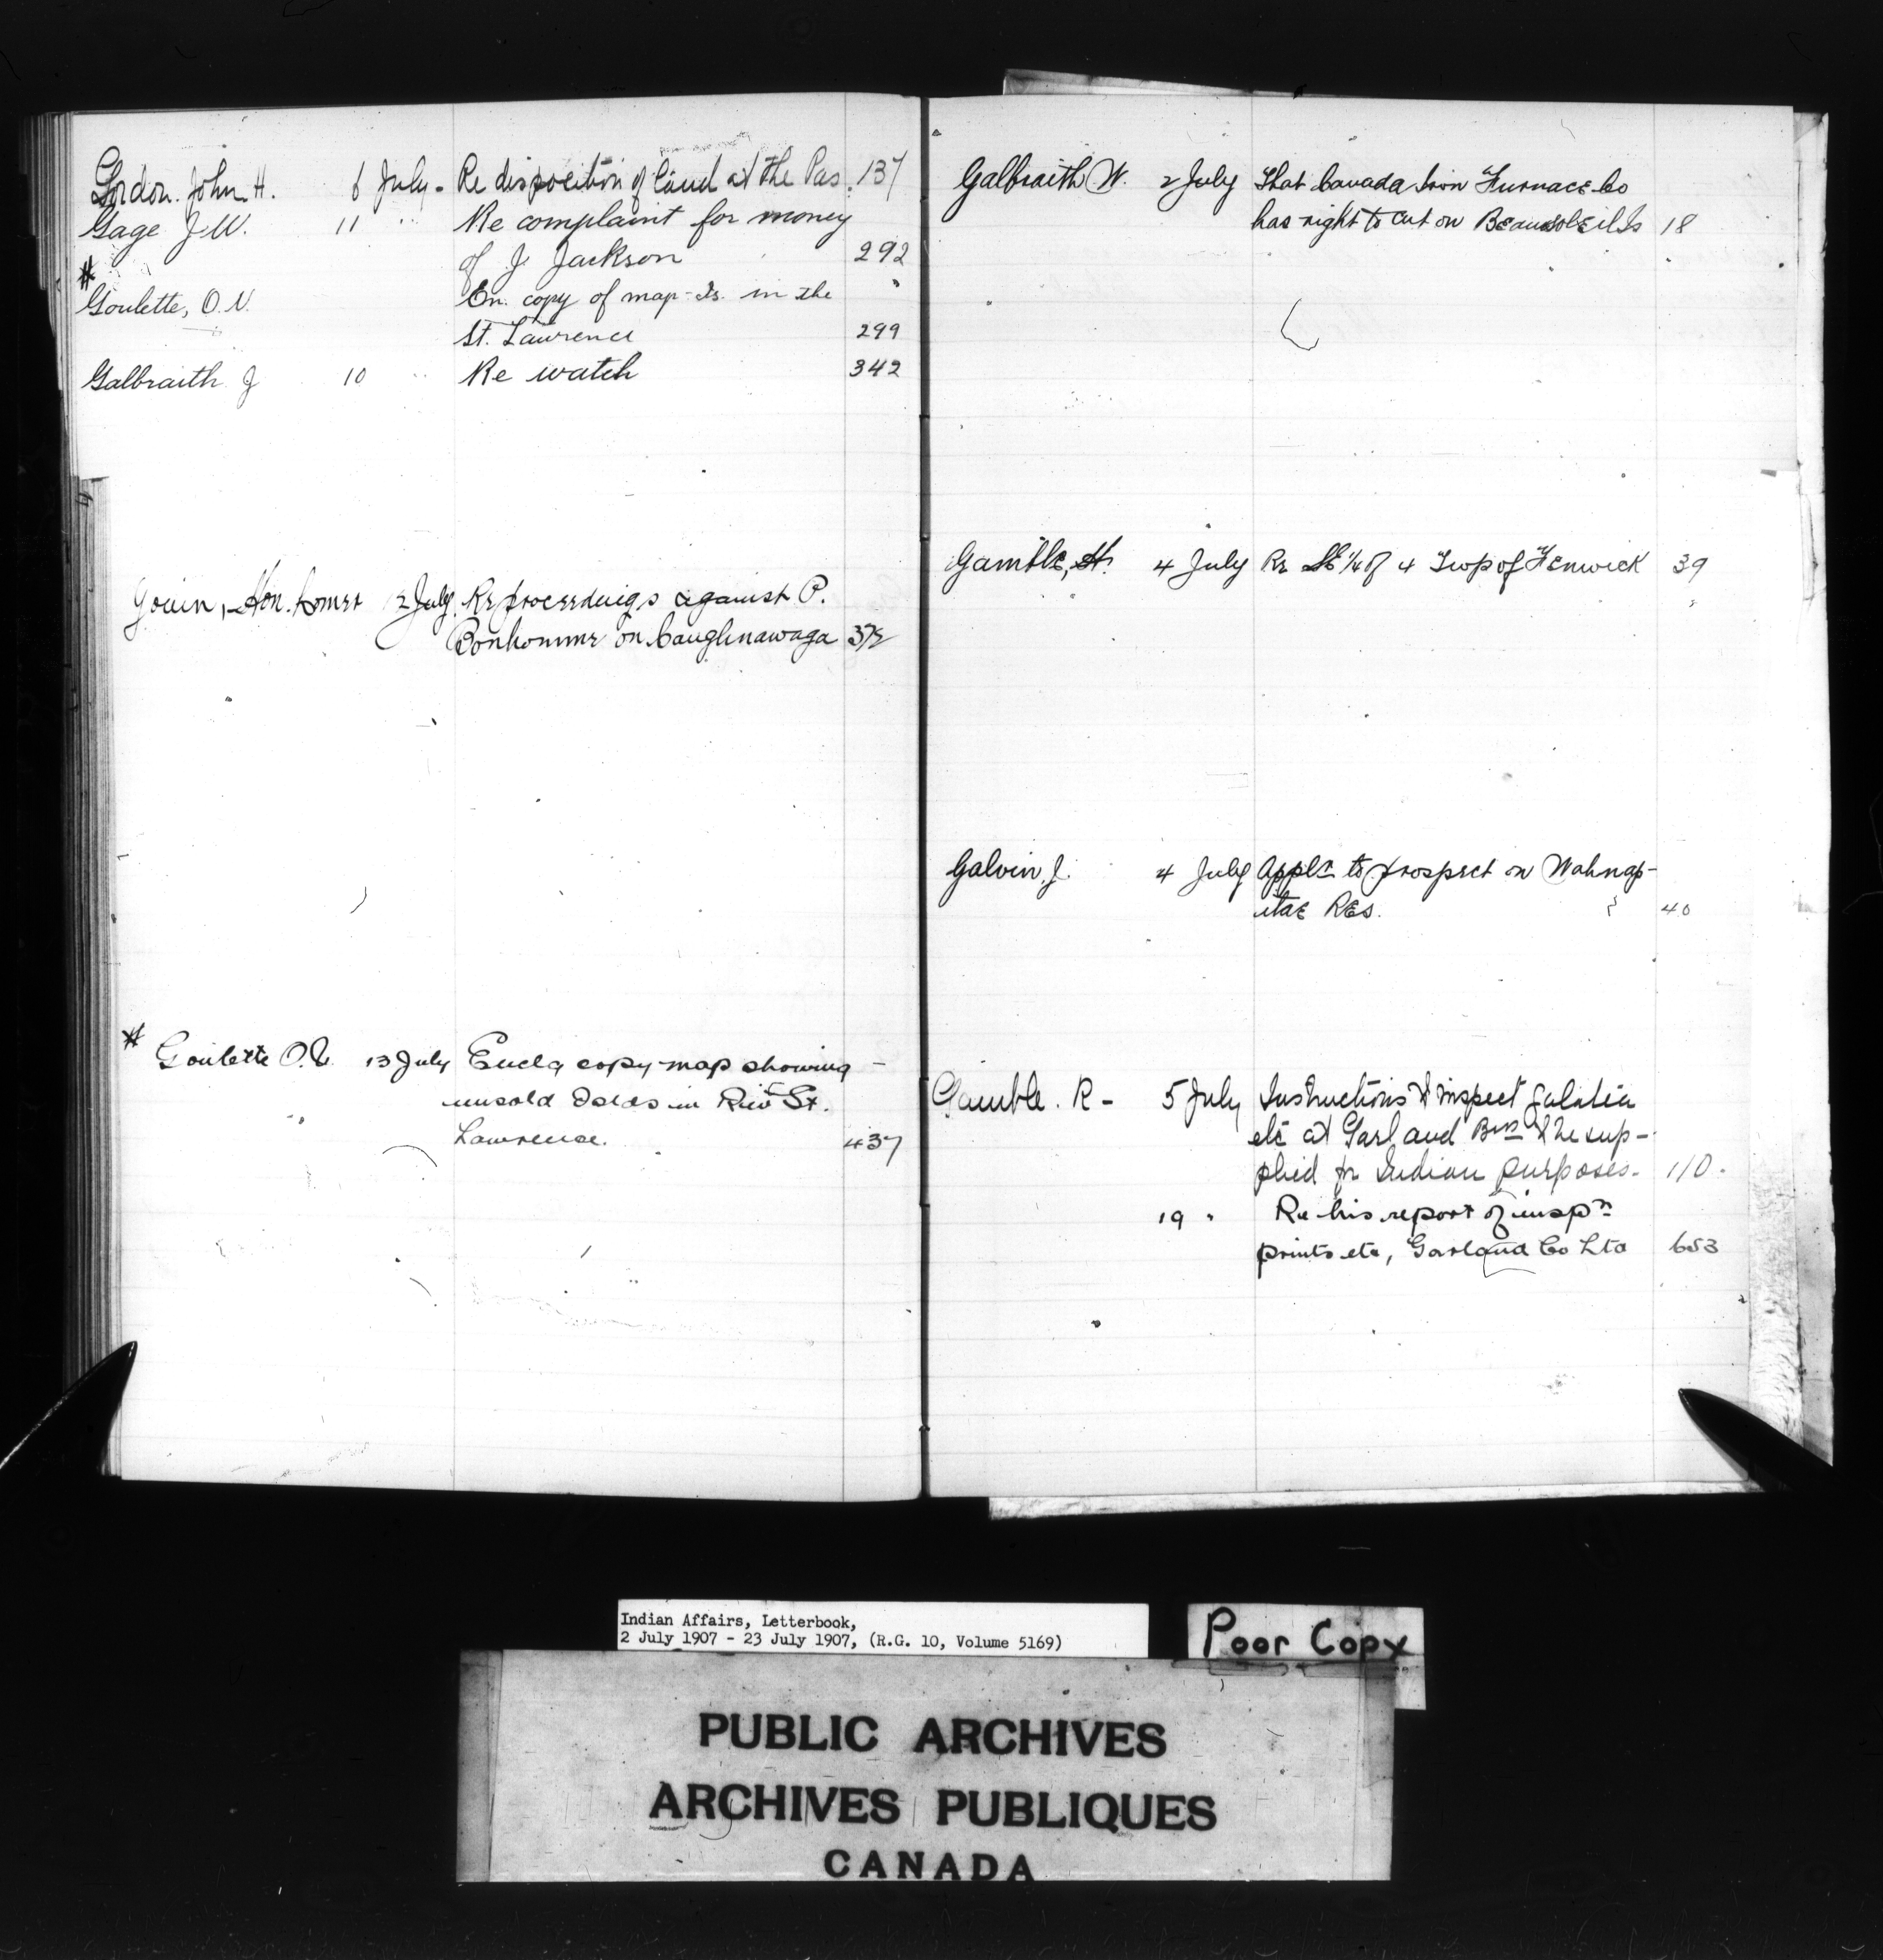 Gordon. John. H. 6 July - Re disposition of land at the Pas. 137
Gage J.W. 11 " Re complaint for money
of J. Jackson 292
#
Goulette, O.V. En. copy of map - Is. in the "
St. Lawrence 299
Galbraith J 10 " Re watch 342
Gouin, Hon. Lomer 12 July. Re proceedings against P.
Bonhomme on Caughnawaga 372
# Goulette O.V. 13 July Encl'g copy map showing
unsold Islds in Riv St.
Lawrence. 437
Galbraith W. 2 July That Canada Iron Furnace Co
has right to cut on Beausoleil Is 18
Gamble, H. 4 July Re SE 1/4 of 4 Twp of Fenwick 39
Galvin J. 4 July Appln to prospect on Wahnap-
itae Res. 40
Gamble. R - 5 July Instructions to inspect
etc at Garland Bros to be sup-
plied for Indian purposes. 110.
19 " Re his report of inspn
prints etc, Garland Co Ltd 653
Indian Affairs, Letterbook,
2 July 1907 - 23 July 1907, (R.G. 10, Volume 5169)
Poor Copy
PUBLIC ARCHIVES
ARCHIVES PUBLIQUES
CANADA